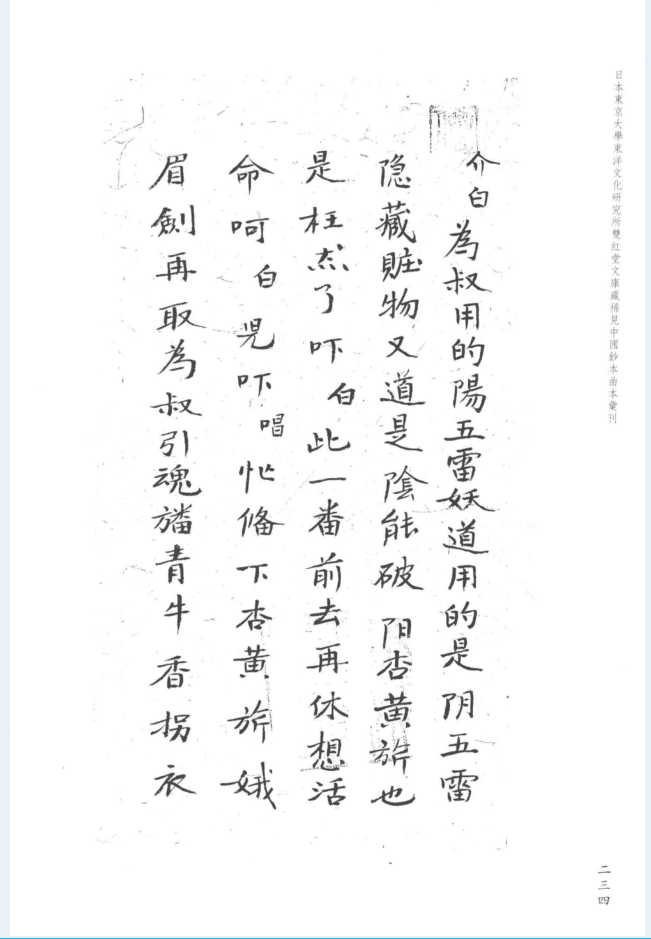 日本東京大學東洋文化研究所雙紅堂文庫藏稀見中國鈔本曲本彙刊
介白為叔用的陽五雷妖道用的是阴五雷
隐藏賍物又道是陰能破阳杏黄旂也
是枉然了吓白此一番前去再休想活
命呵白児吓唱忙俻下杏黄旂娥
眉劍再取為叔引魂旛青牛香拐衣
二三四